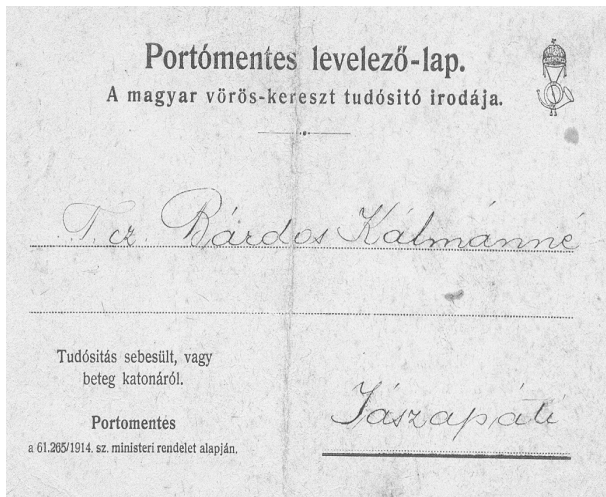 Portómentes levelező-lap.
A magyar vörös-kereszt tudósitó irodája.
T. cz. Bárdos Kálmánné
Tudósitás sebesült, vagy
beteg katonáról.
Jászapáti
Portomentes
a 61.265/1914. sz. ministeri rendelet alapján.